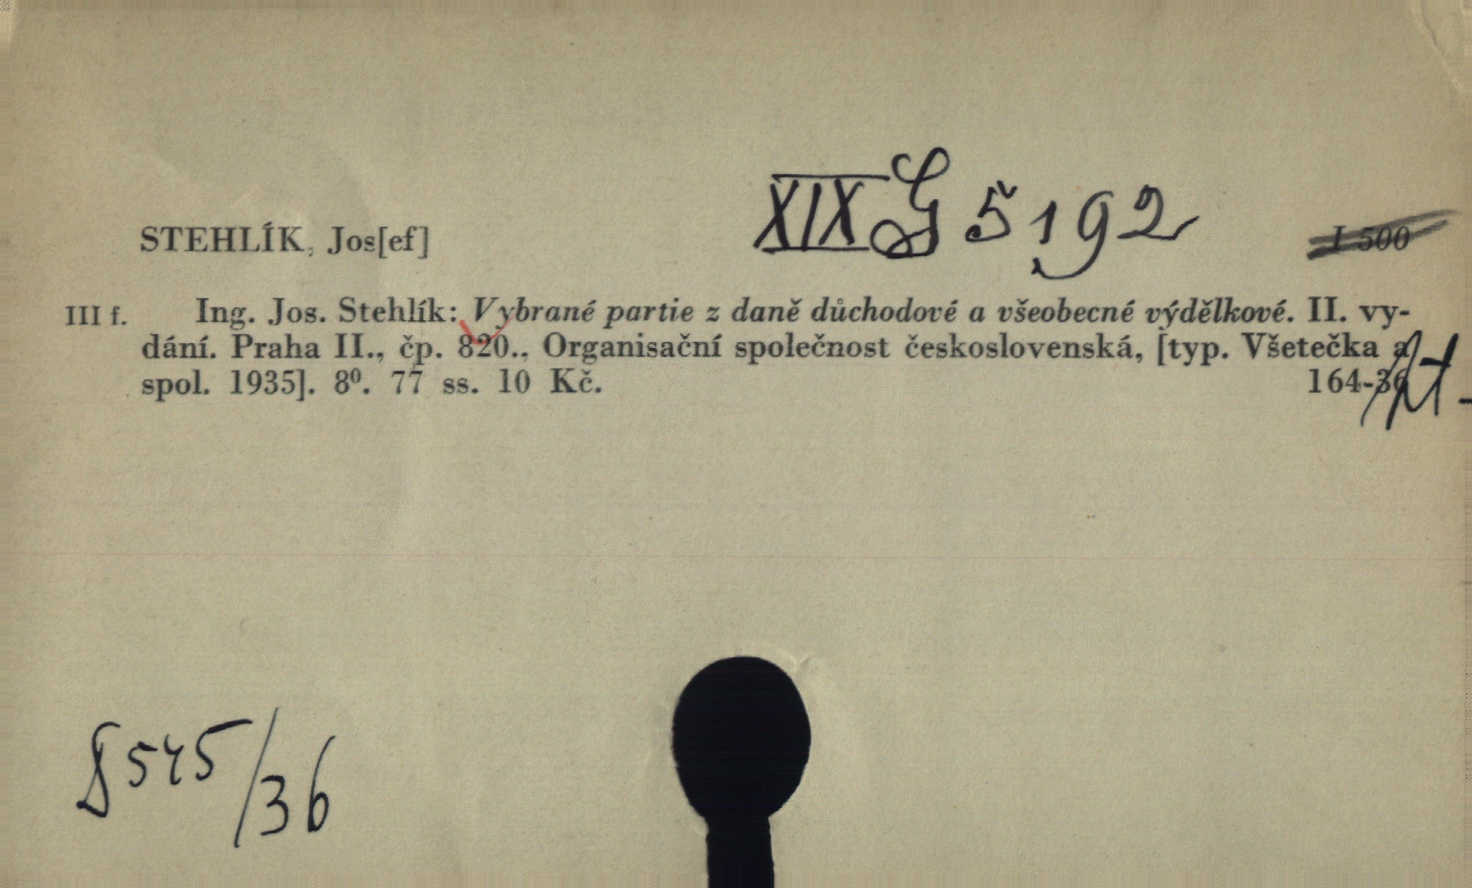 XIX G 5192
STEHLÍK, Jos[ef]
I 500
III f. Ing. Jos. Stehlík: Vybrané partie z daně důchodové a všeobecné výdělkové. II. vy-
dání. Praha II., čp. 820., Organisační společnost československá, [typ. Všetečka a
spol. 1935]. 8⁰. 77 ss. 10 Kč. 164-36
§ 545/36